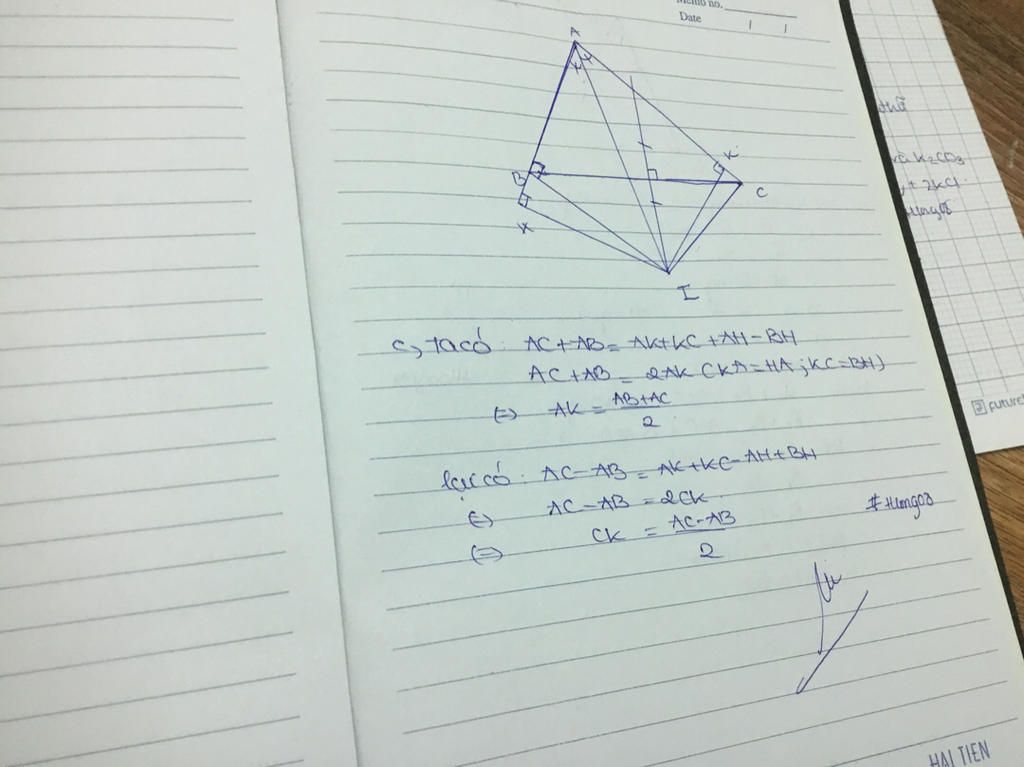 Memo no.
Date
A
B
K
C
H
I
c, Ta có: AC + AB = AK + KC + AH - BH
AC + AB = 2AK (KA = HA ; KC = BH)
(=) AK = \frac{AB + AC}{2}
Lại có: AC - AB = AK + KC - AH + BH
(=) AC - AB = 2CK
(=) CK = \frac{AC - AB}{2}
#Hung08
và K₂CO₃
+ 2KCl
Hung08
HẢI TIẾN